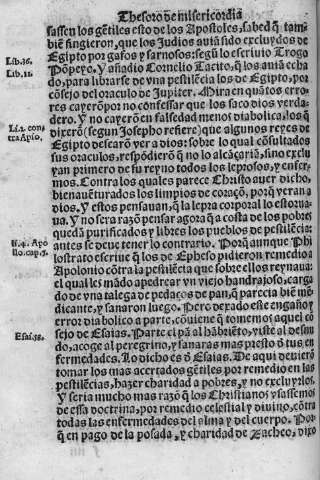 Thesoro de misericordia
sassen los gẽtiles esto de los Apostoles, sabed q̃ tam-
Lib.36. biẽ fingieron, que los Judios auiã sido excluydos de
Egipto por gafos y sarnosos: segũ lo escriuio Trogo
Lib.21. Põpeyo. Y añadio Cornelio Tacito, q̃ los auiã echa
do, para librarse de vna pestilẽcia los de Egipto, por
cõsejo del oraculo de Jupiter. Mira en quãtos erro-
res cayerõ por no confessar que los saco dios verda-
dero. Y no cayerõ en falsedad menos diabolica, los q̃
Li.1. con- dixerõ (segun Josepho refiere) que algunos reyes de
tra Apio. Egipto dessearõ ver a dios: sobre lo qual cõsultados
sus oraculos, respõdierõ q̃ no lo alcãçariã, sino exclu
yan primero de su reyno todos los leprosos, y enfer-
mos. Contra los quales parece Christo auer dicho,
bienauẽturados los limpios de coraçõ, porq̃ veran a
dios. Y estos pensauan, q̃ la lepra corporal lo estorua-
ua. Y no sera razõ pensar agora q̃ a costa de los pobres
quedã purificados y libres los pueblos de pestilẽcia:
li.4. Apo antes se deue tener lo contrario. Porq̃ aunque Phi
llo.cap.3. lostrato escriue q̃ los de Epheso pidieron remedio a
Apolonio cõtra la pestilẽcia que sobre ellos reynaua:
el qual les mãdo apedrear vn viejo handrajoso, carga
do de vna talega de pedaços de pan, q̃ parecia biẽ mẽ
dicante, y sanaron luego. Pero dexado este engaño y
error diabolico a parte, cõuiene q̃ tomemos aquel cõ
Esai.58. sejo de Esaias. Parte el pã al hãbriẽto, viste al desnu
do, acoge al peregrino, y sanaras mas presto d̃ tus en
fermedades. Lo dicho es d̃ Esaias. De aqui deuierõ
tomar los mas acertados gẽtiles por remedio en las
pestilẽcias, hazer charidad a pobres, y no excluyrlos.
Y seria mucho mas razõ q̃ los Christianos vsassemos
de essa doctrina, por remedio celestial y diuino, cõtra
todas las enfermedades del alma y del cuerpo. Por
q̃ en pago de la posada, y charidad de Zacheo, dixo